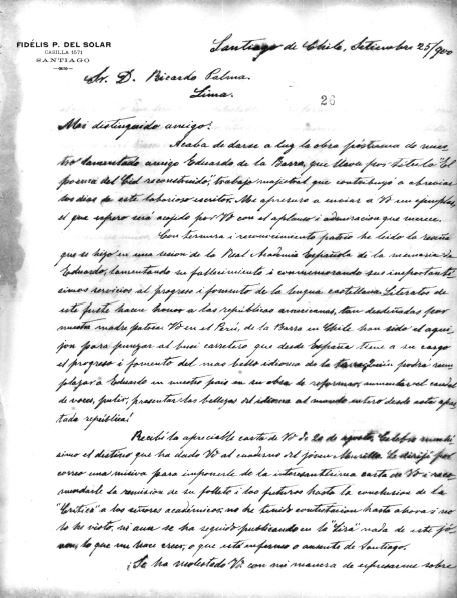 FIDÉLIS P. DEL SOLAR
CASILLA 1571
SANTIAGO
Santiago de Chile, Setiembre 25/900
Sr. D. Ricardo Palma.
Lima.
26
Mui distinguido amigo:
Acaba de darse a luz la obra póstuma de nues-
tro lamentado amigo Eduardo de la Barra, que lleva por título "El
poema del Cid reconstruido", trabajo majistral que contribuyó a abreviar
los dias de este laborioso escritor. Me apresuro a enviar a Vd un ejemplar,
el que espero será acojido por Vd con el aplauso i admiracion que merece.
Con ternura i reconocimiento patrio he leido la reseña
que se hizo en una sesion de la Real Academia Española de la memoria de
Eduardo, lamentando su fallecimiento i conmemorando sus importantí-
simos servicios al progreso i fomento de la lengua castellana. Literatos de
este fuste hacen honor a las repúblicas americanas, tan desdeñadas por
nuestra madre patria. Vd en el Perú, de la Barra en Chile han sido el agui-
jon para punzar al buei carretero que desde España tiene a su cargo
el progreso i fomento del mas bello idioma de la tierra. Quién podrá reem-
plazar a Eduardo en nuestro pais en su obra de reformar, aumentar el caudal
de voces, pulir, presentar las bellezas del idioma al mundo entero desde esta apar-
tada república!
Recibí la apreciable carta de Vd de 20 de agosto. Celebro muchí-
simo el destino que ha dado Vd al cuaderno del jóven Murillo. Le dirijí por
correo una misiva para imponerle de la interesantísima carta de Vd i reco-
mendarle la remision de su folleto i los futuros hasta la conclusion de la
"Crítica" a los señores académicos; no he tenido contestacion hasta ahora i no
lo he visto, ni aun se ha seguido publicando en la "Lira" nada de este jó-
ven, lo que me hace creer, o que está enfermo o ausente de Santiago.
¡Se ha molestado Vd con mi manera de espresarme sobre